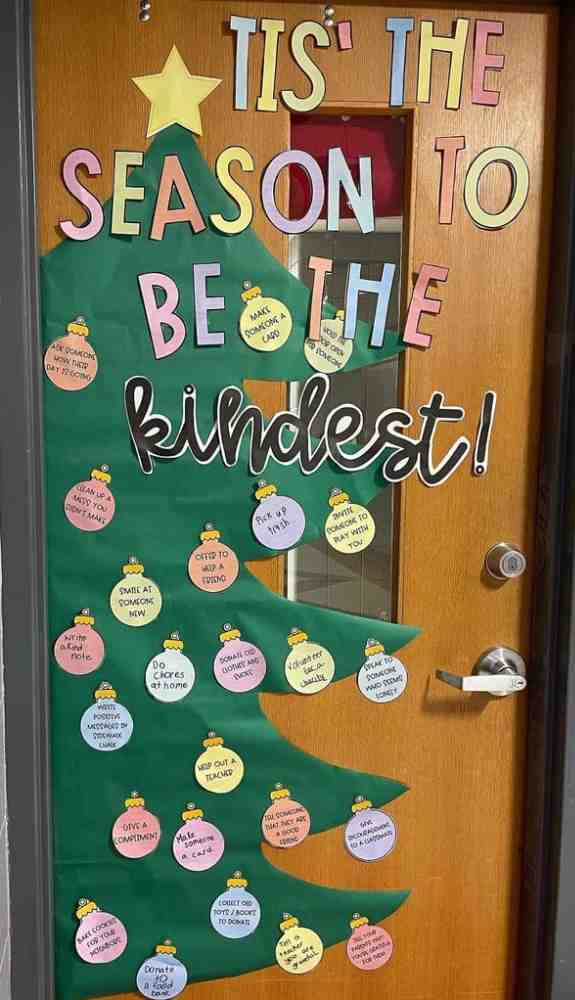 TIS' THE
SEASON TO
BE THE
kindest!
MAKE
SOMEONE A
CARD
HOLD THE
DOOR OPEN
FOR SOMEONE
ASK SOMEONE
HOW THEIR
DAY IS GOING
CLEAN UP A
MESS YOU
DIDN'T MAKE
Pick up
trash
INVITE
SOMEONE TO
PLAY WITH
YOU
OFFER TO
HELP A
FRIEND
SMILE AT
SOMEONE
NEW
Write
a kind
note
Do
Chores
at home
DONATE OLD
CLOTHES AND
SHOES
Volunteer
for a
charity
SPEAK TO
SOMEONE
WHO SEEMS
LONELY
WRITE
POSITIVE
MESSAGES IN
SIDEWALK
CHALK
HELP OUT A
TEACHER
GIVE A
COMPLIMENT
Make
someone
a card
TELL SOMEONE
THAT THEY ARE
A GOOD
FRIEND
GIVE
ENCOURAGEMENT
TO A CLASSMATE
COLLECT OLD
TOYS / BOOKS
TO DONATE
BAKE COOKIES
FOR YOUR
NEIGHBORS
Tell a
teacher
you are
grateful
TELL YOUR
PARENTS THAT
YOU'RE GRATEFUL
FOR THEM
Donate
to
a food
bank